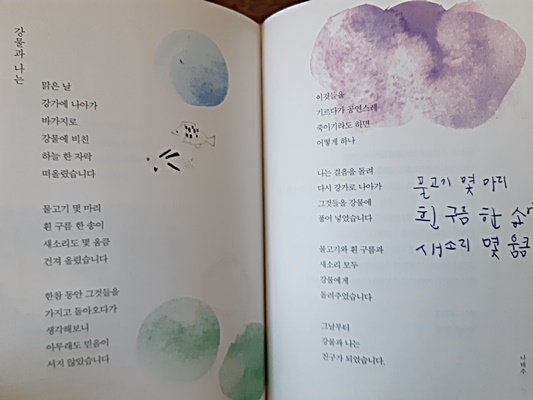 강물과 나는
맑은 날
강가에 나아가
바가지로
강물에 비친
하늘 한 자락
떠올렸습니다
물고기 몇 마리
흰 구름 한 송이
새소리도 몇 움큼
건져 올렸습니다
한참 동안 그것들을
가지고 돌아오다가
생각해보니
아무래도 믿음이
서지 않았습니다
이것들을
기르다가 공연스레
죽이기라도 하면
어떻게 하나
나는 걸음을 돌려
다시 강가로 나아가
그것들을 강물에
풀어 넣었습니다
물고기와 흰 구름과
새소리 모두
강물에게
돌려주었습니다
그날부터
강물과 나는
친구가 되었습니다.
물고기 몇 마리
흰 구름 한
새소리 몇 움큼
나태주